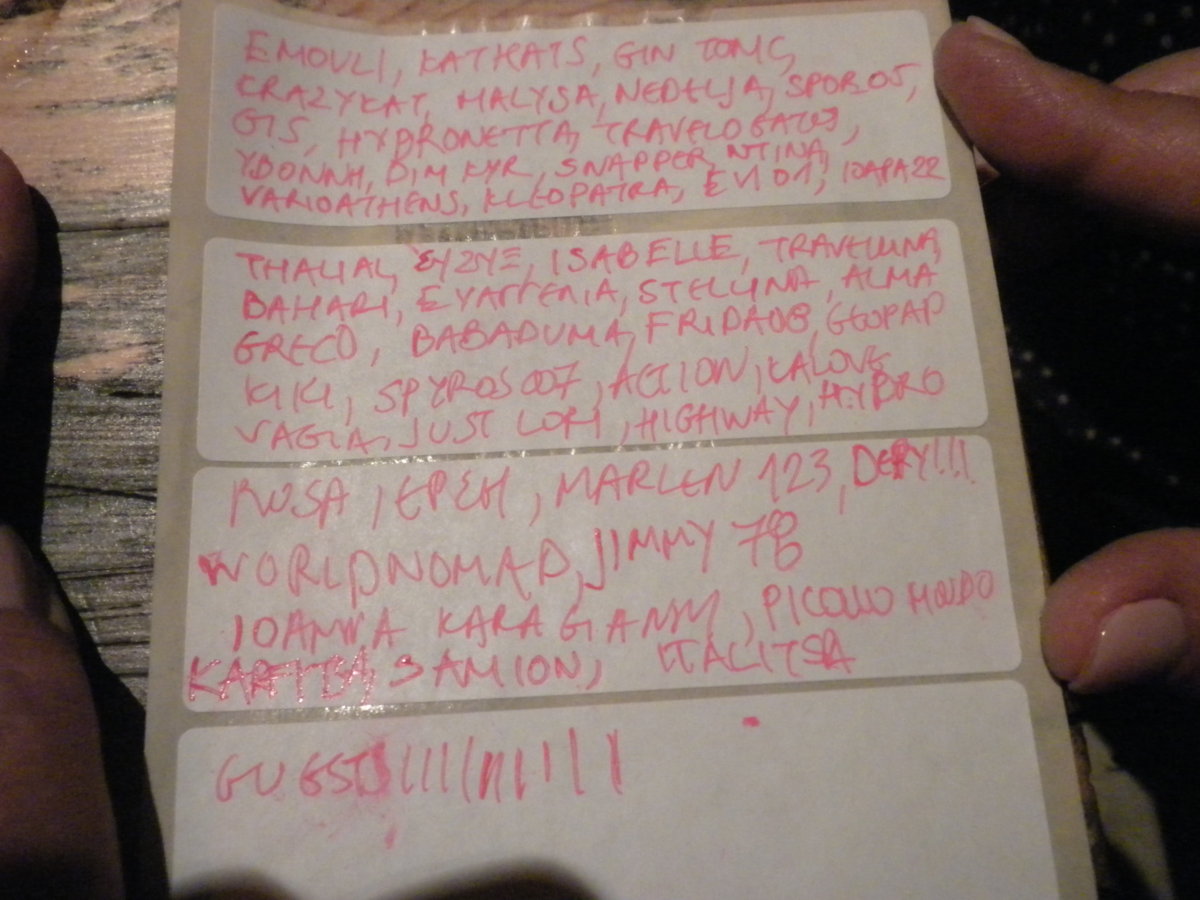 EMOULI, KATKATS, GIN TONIC,
CRAZYKAT, MALYSA, NEDELJA, SPOROS,
GIS, HYDRONETTA, TRAVELOGATOS,
YDONNH, DIM KYR, SNAPPER, NTINA,
VARIOATHENS, KLEOPATRA, EVI D1, IOAPA22
THALIAL, ISABELLE, TRAVELLINA,
BAHARI, STELLINA, ALMA
GRECO, BABADUMA, FRIDA08, GEOPAP
KIKI, SPYROS007, ACCION, KALOVE
VAGIA, JUST LORI, HIGHWAY, HYDRO
ROSA, ΙΕΡΕΗ, MARLEN 123, DERY!!!
WORLDNOMAD, JIMMY 78
IOANNA KARAGIANNI, PICOLLO MONDO
SAMION, ITALITSA
GUESTS ||||||||||